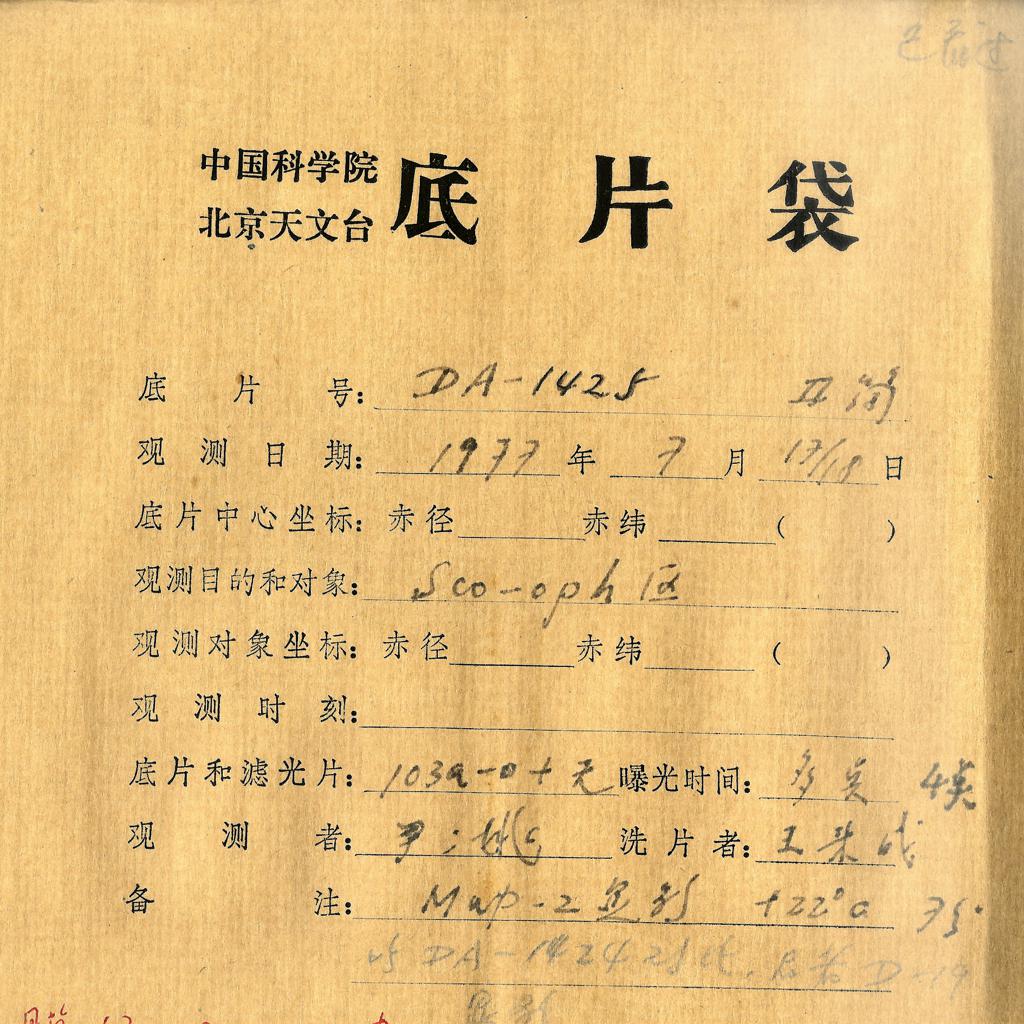 中国科学院
北京天文台
底片袋
底片号: DA-1425
观测日期: 1977年 7月 17/18日
底片中心坐标: 赤径 赤纬 ( )
观测目的和对象: Sco-oph 区
观测对象坐标: 赤径 赤纬 ( )
观测时刻:
底片和滤光片: 103a-o + 无 曝光时间: 多英 4英
观测者: 洗片者: 王
备注: Map-2 显影 +22°C
DA-1424 D-19
显影